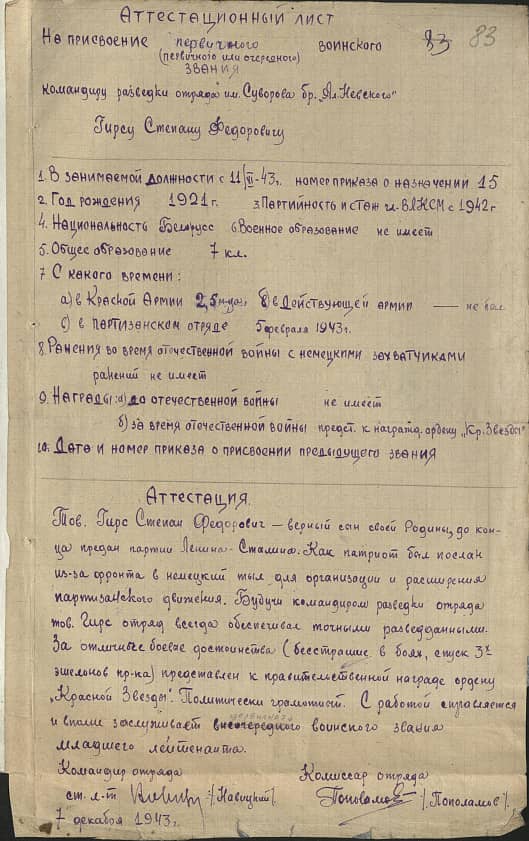 Аттестационный лист
83 83
На присвоение первичного воинского
(первичного или очередного)
звания
командиру разведки отряда им. Суворова бр. „Ал. Невского"
Гирсу Степану Федоровичу
1. В занимаемой должности с 11/VI-43г. номер приказа о назначении 15
2. Год рождения 1921 г. 3. Партийность и стаж чл. ВЛКСМ с 1942 г
4. Национальность Беларусс 6 Военное образование не имеет
5. Общее образование 7 кл.
7 С какого времени:
а) в Красной Армии 2,5 года, в) в действующей армии — не был
с) в партизанском отряде 5 февраля 1943г.
8. Ранения во время отечественной войны с немецкими захватчиками
ранений не имеет
9. Награды: а) до отечественной войны не имеет
б) за время отечественной войны предст. к награжд. ордену „Кр. Звезды"
10. Дата и номер приказа о присвоении предыдущего звания
Аттестация.
Тов. Гирс Степан Федорович – верный сын своей Родины, до кон-
ца предан партии Ленина-Сталина. Как патриот был послан
из-за фронта в немецкий тыл для организации и расширения
партизанского движения. Будучи командиром разведки отряда
тов. Гирс отряд всегда обеспечивал точными разведданными.
За отличные боевые достоинства (бесстрашие в боях, спуск 3х
эшелонов пр-ка) представлен к правительственной награде ордену
„Красной Звезды". Политически грамотный. С работой справляется
и вполне заслуживает первичного воинского звания
младшего лейтенанта.
Командир отряда Комиссар отряда
ст. л-т /Новицкий/. Пополамов /Пополамов/.
7 декабря 1943г.